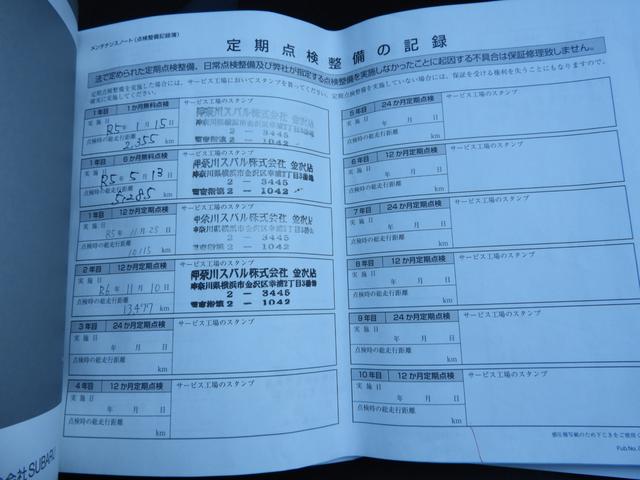 メンテナンスノート(点検整備記録簿)
定期点検整備の記録
法で定められた定期点検整備、日常点検整備及び弊社が指定する点検整備を実施しなかったことに起因する不具合は保証修理致しません。
定期点検整備を実施した場合には、サービス工場においてスタンプを貰ってください。定期点検整備を実施していない場合には、保証を受ける権利を失うこともなりますので、
確実に実施してください。
1年目 1か月無料点検 サービス工場のスタンプ
実施日
R5年 1月 15日
点検時の総走行距離
2,355 km
神奈川スバル株式会社 金沢店
神奈川県横浜市金沢区幸浦2丁目3番地
2 - 3445
電客指第2 - 1042
1年目 6か月無料点検 サービス工場のスタンプ
実施日
R5年 5月 13日
点検時の総走行距離
5285 km
神奈川スバル株式会社 金沢店
神奈川県横浜市金沢区幸浦2丁目3番地
2 - 3445
2 - 1042
1年目 12か月定期点検 サービス工場のスタンプ
実施日
R5年 11月 23日
点検時の総走行距離
10115 km
神奈川スバル株式会社 金沢店
神奈川県横浜市金沢区幸浦2丁目3番地
2 - 3445
2 - 1042
2年目 12か月定期点検 サービス工場のスタンプ
実施日
R6年 11月 10日
点検時の総走行距離
13,477 km
神奈川スバル株式会社 金沢店
神奈川県横浜市金沢区幸浦2丁目3番地
2 - 3445
2 - 1042
3年目 24か月定期点検 サービス工場のスタンプ
実施日
年 月 日
点検時の総走行距離
km
4年目 12か月定期点検 サービス工場のスタンプ
実施日
年 月 日
点検時の総走行距離
km
5年目 24か月定期点検 サービス工場のスタンプ
実施日
年 月 日
点検時の総走行距離
km
6年目 12か月定期点検 サービス工場のスタンプ
実施日
年 月 日
点検時の総走行距離
km
7年目 24か月定期点検 サービス工場のスタンプ
実施日
年 月 日
点検時の総走行距離
km
8年目 12か月定期点検 サービス工場のスタンプ
実施日
年 月 日
点検時の総走行距離
km
9年目 24か月定期点検 サービス工場のスタンプ
実施日
年 月 日
点検時の総走行距離
km
10年目 12か月定期点検 サービス工場のスタンプ
実施日
年 月 日
点検時の総走行距離
km
感圧複写紙のため下じきをご使用く
Pub.No.
会社SUBARU